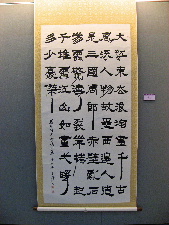 大江東去浪淘盡千古
風流人物故壘西邊人道
是三國周郎赤壁亂石
崩雲驚濤裂岸捲起
千堆雪江山如畫一時
多少豪傑